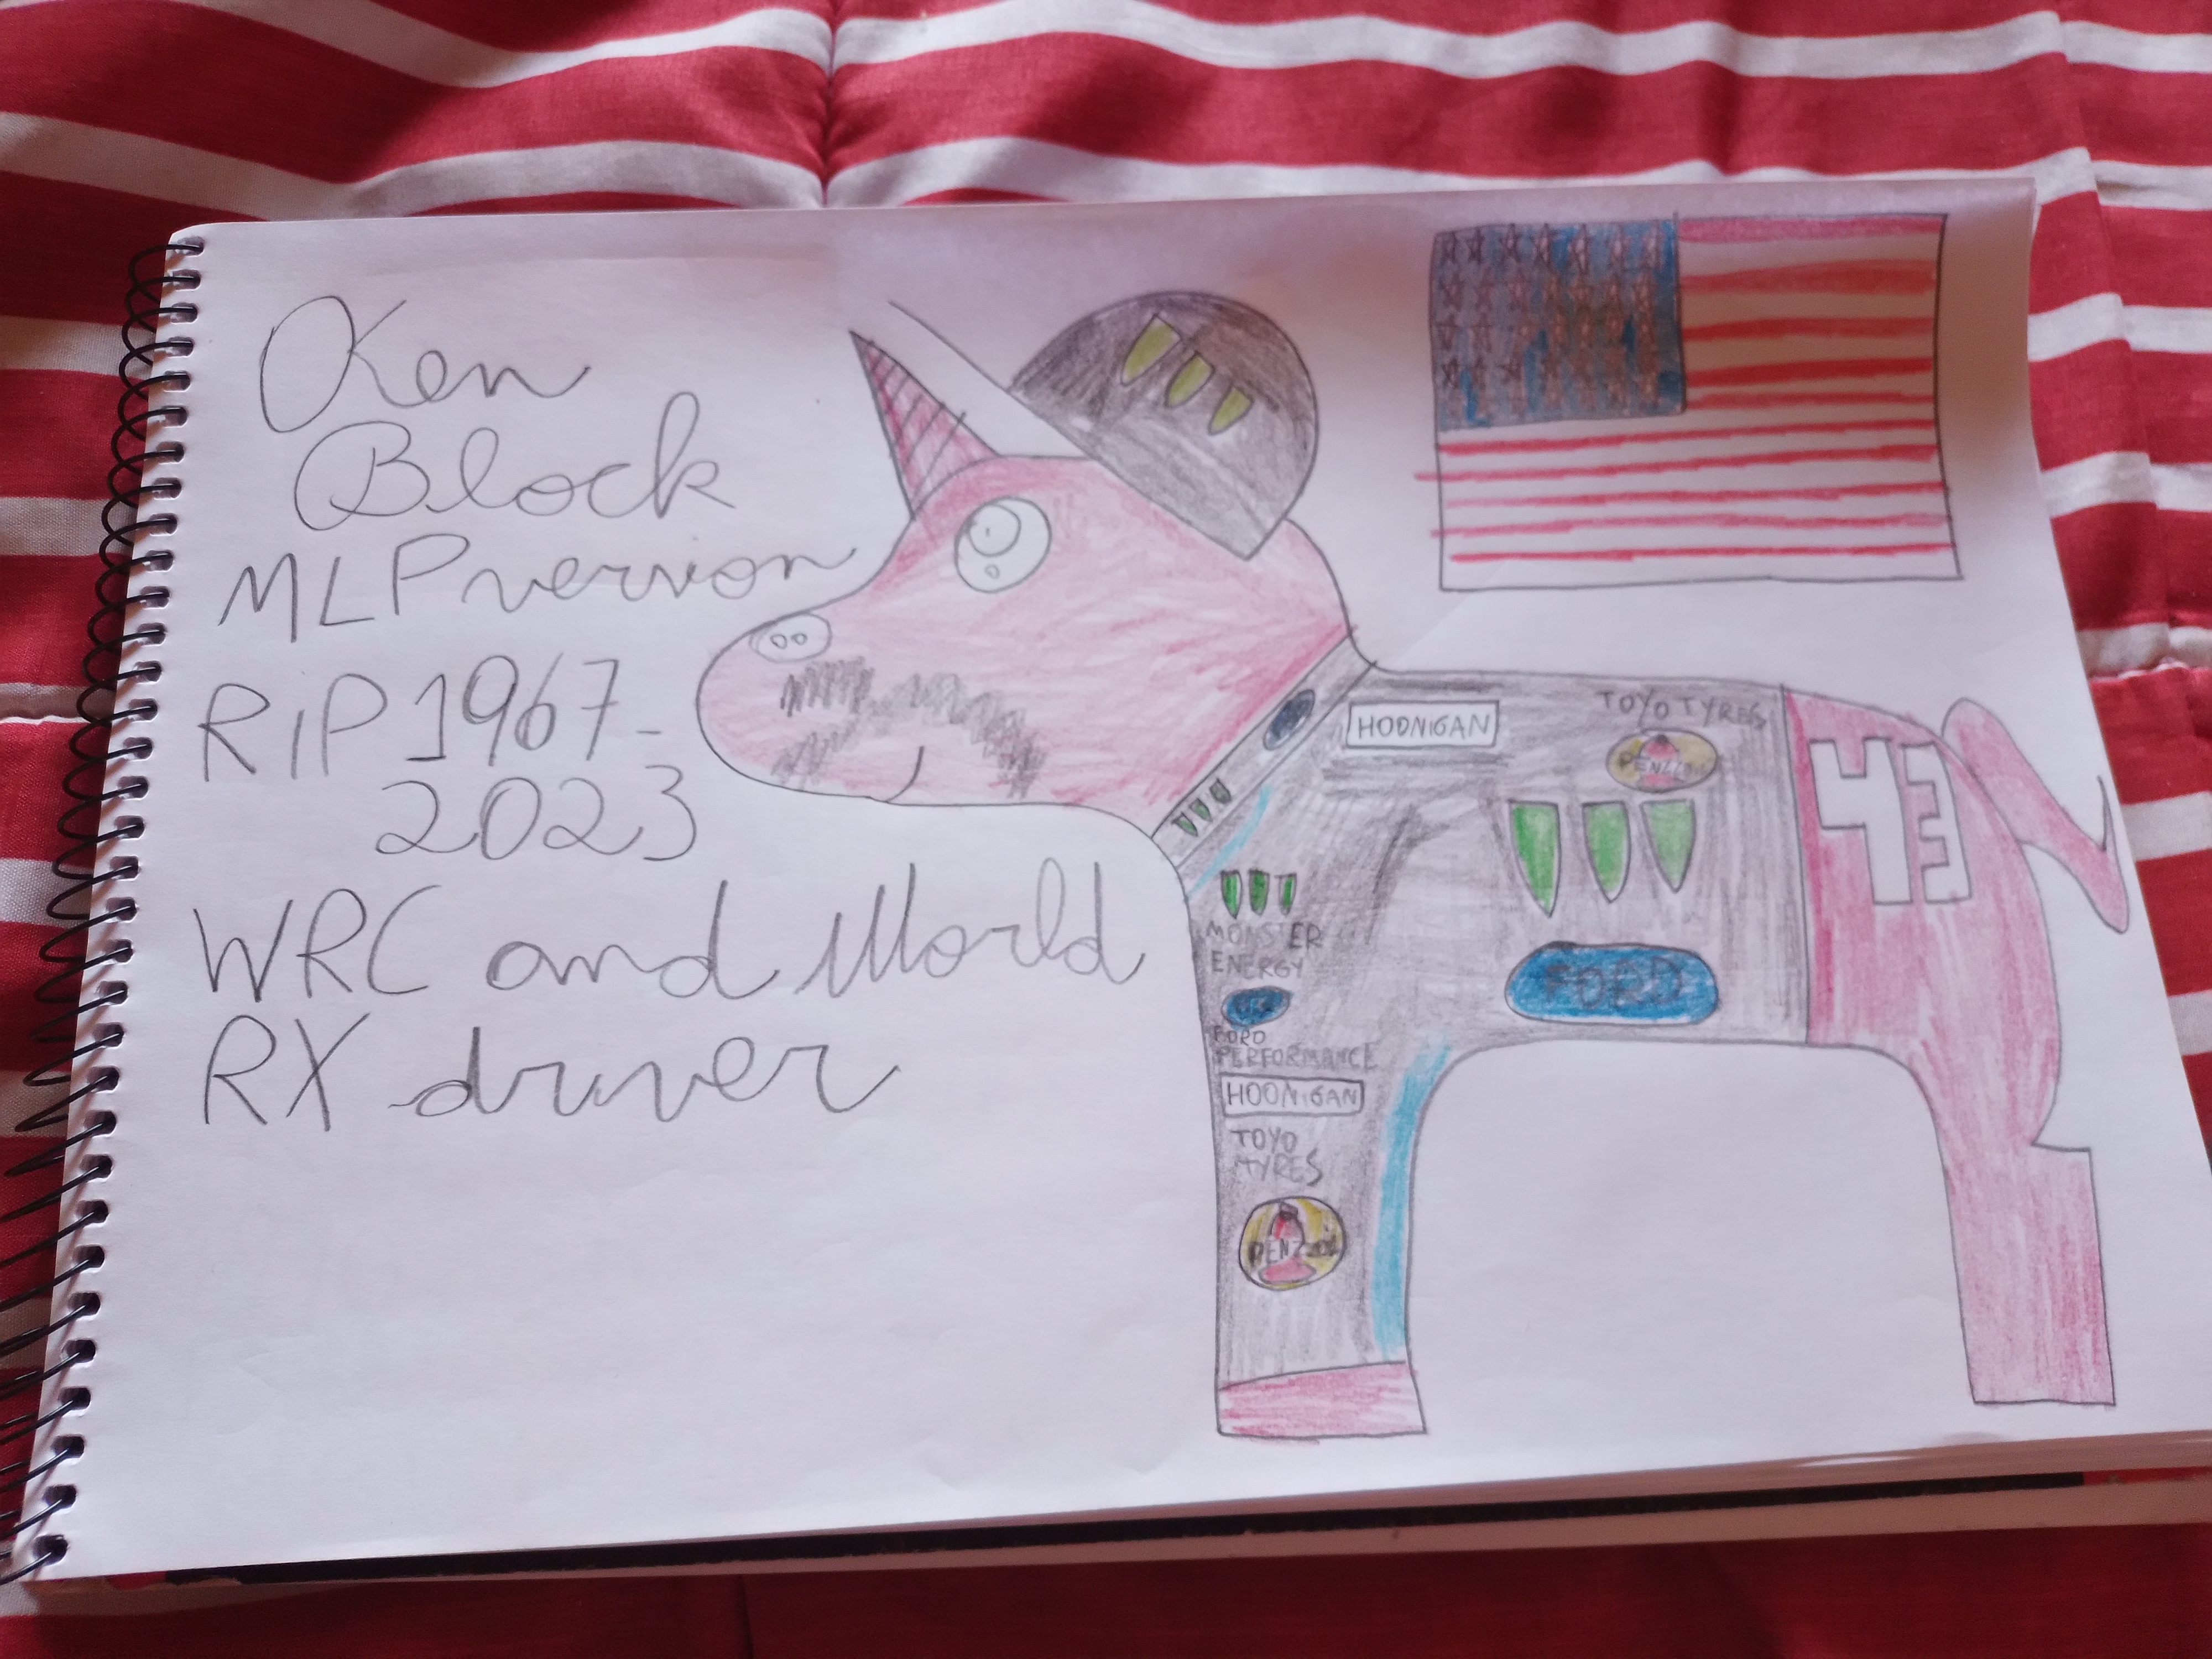 Ken
Block
MLP version
RIP 1967-
2023
WRC and World
RX driver
HOONIGAN
TOYO TYRES
PENZZOIL
43
FORD
MONSTER
ENERGY
FORD
PERFORMANCE
HOONIGAN
TOYO
TYRES
PENZZOIL